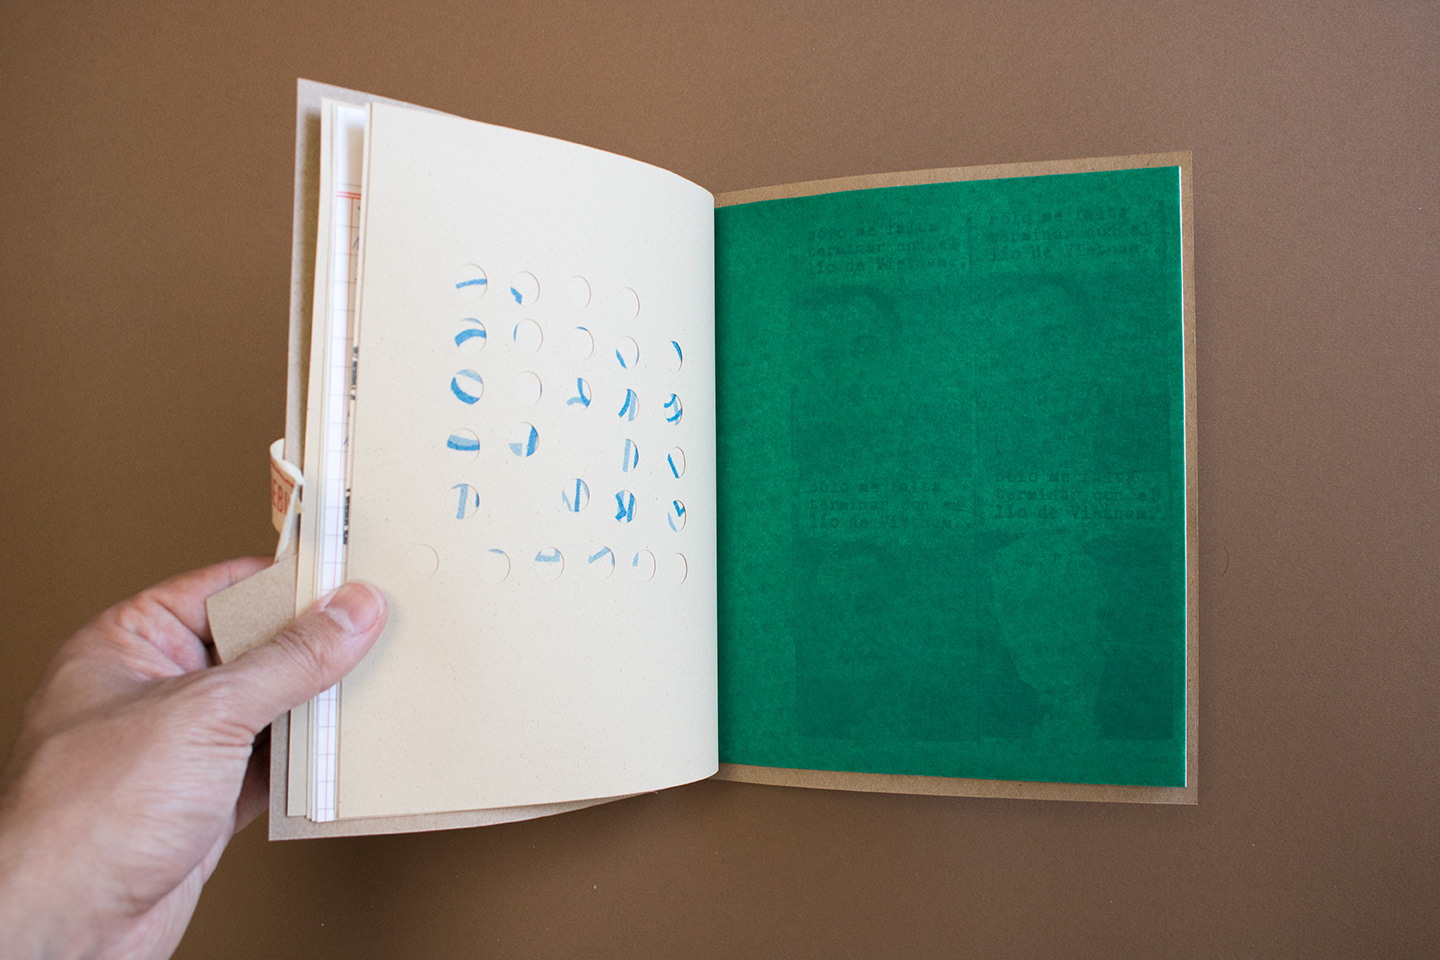 sólo me falta
terminar con el
lío de Vietnam.
sólo me falta
terminar con el
lío de Vietnam.
sólo me falta
terminar con el
lío de Vietnam.
sólo me falta
terminar con el
lío de Vietnam.